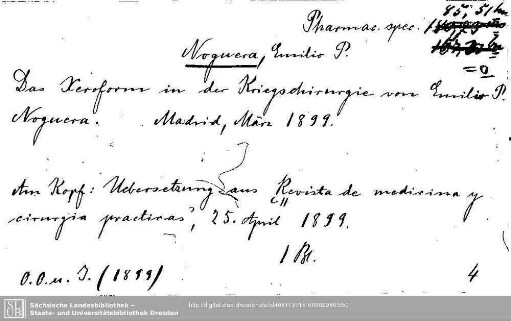 Pharmac. spec.
85, 51 m
= 0
Noguera, Emilio P.
Das Xeroform in der Kriegschirurgie von Emilio P.
Noguera. Madrid, März 1899.
Am Kopf: Uebersetzung aus „Revista de medicina y
cirurgia practicas", 25. April 1899.
1 Bl.
O.O.u.J. (1899)
4
SLUB
Sächsische Landesbibliothek –
Staats- und Universitätsbibliothek Dresden